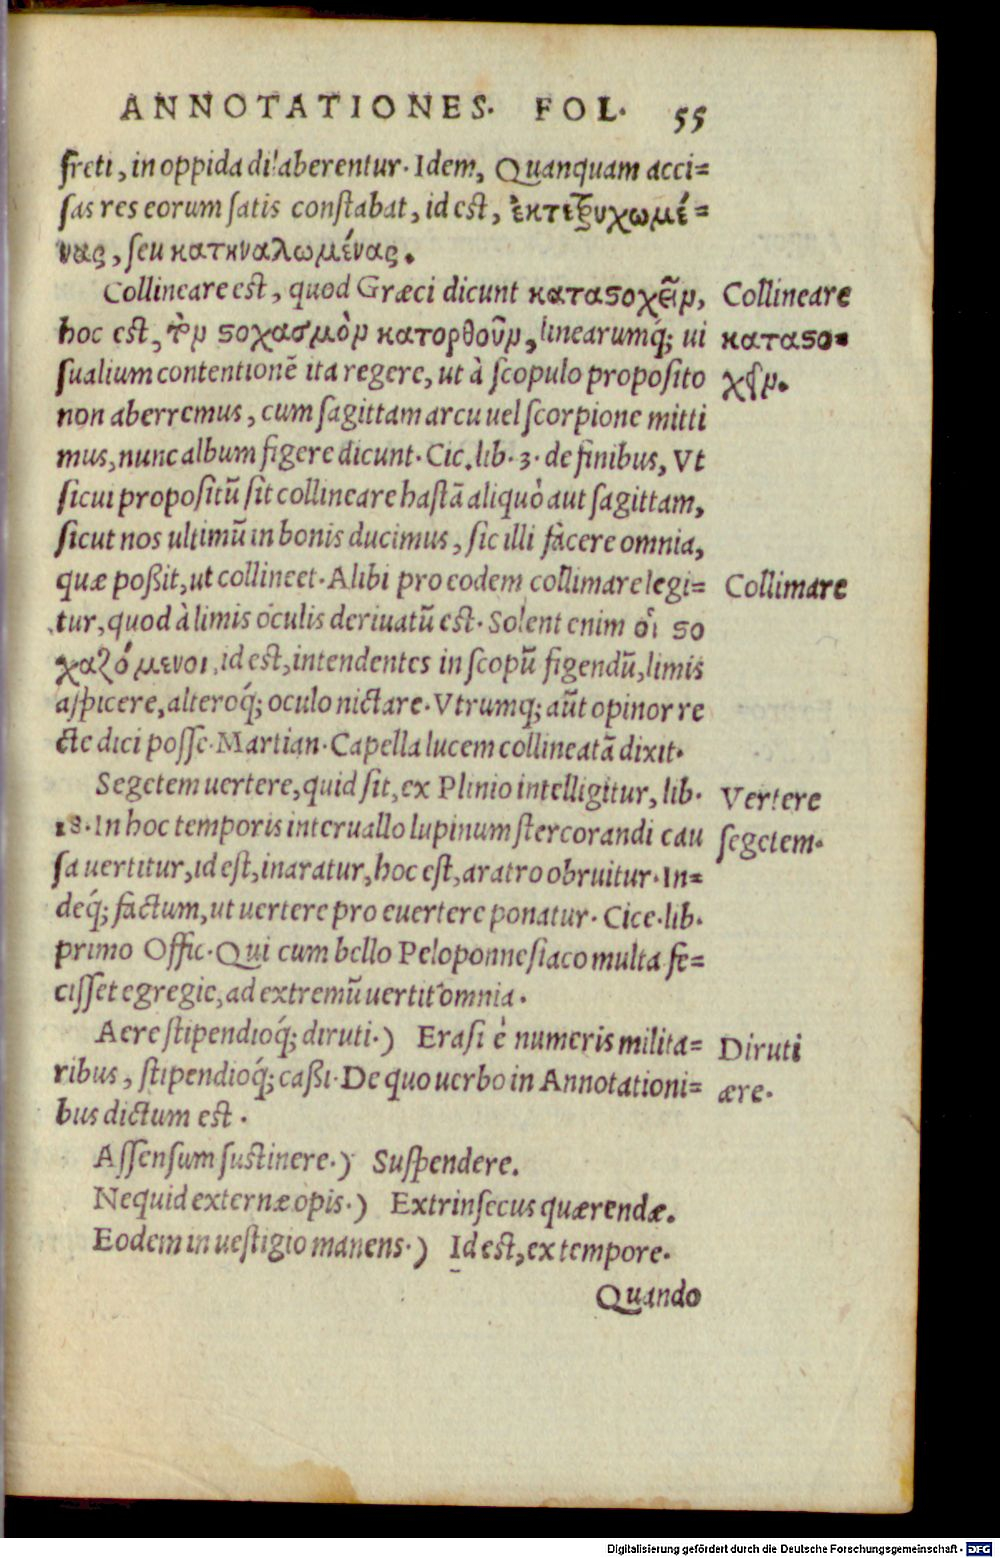 ANNOTATIONES. FOL. 55
freti, in oppida dilaberentur. Idem, Quanquam acci=
sas res eorum satis constabat, id est, ἐκτετρυχωμέ=
νας, seu κατηναλωμένας.
Collineare est, quod Græci dicunt καταστοχεῖν,
hoc est, τὸν στοχασμὸν κατορθοῦν, linearumq; ui
sualium contentionē ita regere, ut à scopulo proposito
non aberremus, cum sagittam arcu uel scorpione mitti
mus, nunc album figere dicunt. Cic. lib. 3. de finibus, Vt
sicui propositū sit collineare hastā aliquò aut sagittam,
sicut nos ultimū in bonis ducimus, sic illi facere omnia,
quæ poßit, ut collineet. Alibi pro eodem collimare legi=
tur, quod à limis oculis deriuatū est. Solent enim οἱ στο
χαζόμενοι, id est, intendentes in scopū figendū, limis
aspicere, alteroq́; oculo nictare. Vtrumq; aūt opinor re
cte dici posse. Martian. Capella lucem collineatā dixit.
Segetem uertere, quid sit, ex Plinio intelligitur, lib.
18. In hoc temporis interuallo lupinum stercorandi cau
sa uertitur, id est, inaratur, hoc est, aratro obruitur. In=
deq́; factum, ut uertere pro euertere ponatur. Cice. lib.
primo Offic. Qui cum bello Peloponnesiaco multa fe=
cisset egregie, ad extremū uertit omnia.
Aere stipendioq́; diruti.) Erasi è numeris milita=
ribus, stipendioq́; caßi. De quo uerbo in Annotationi=
bus dictum est.
Assensum sustinere.) Suspendere.
Nequid externæ opis.) Extrinsecus quærendæ.
Eodem in uestigio manens.) Id est, ex tempore.
Quando
Collineare
καταστο=
χεῖν.
Collimare
Vertere
segetem.
Diruti
ære.
Digitalisierung gefördert durch die Deutsche Forschungsgemeinschaft - DFG